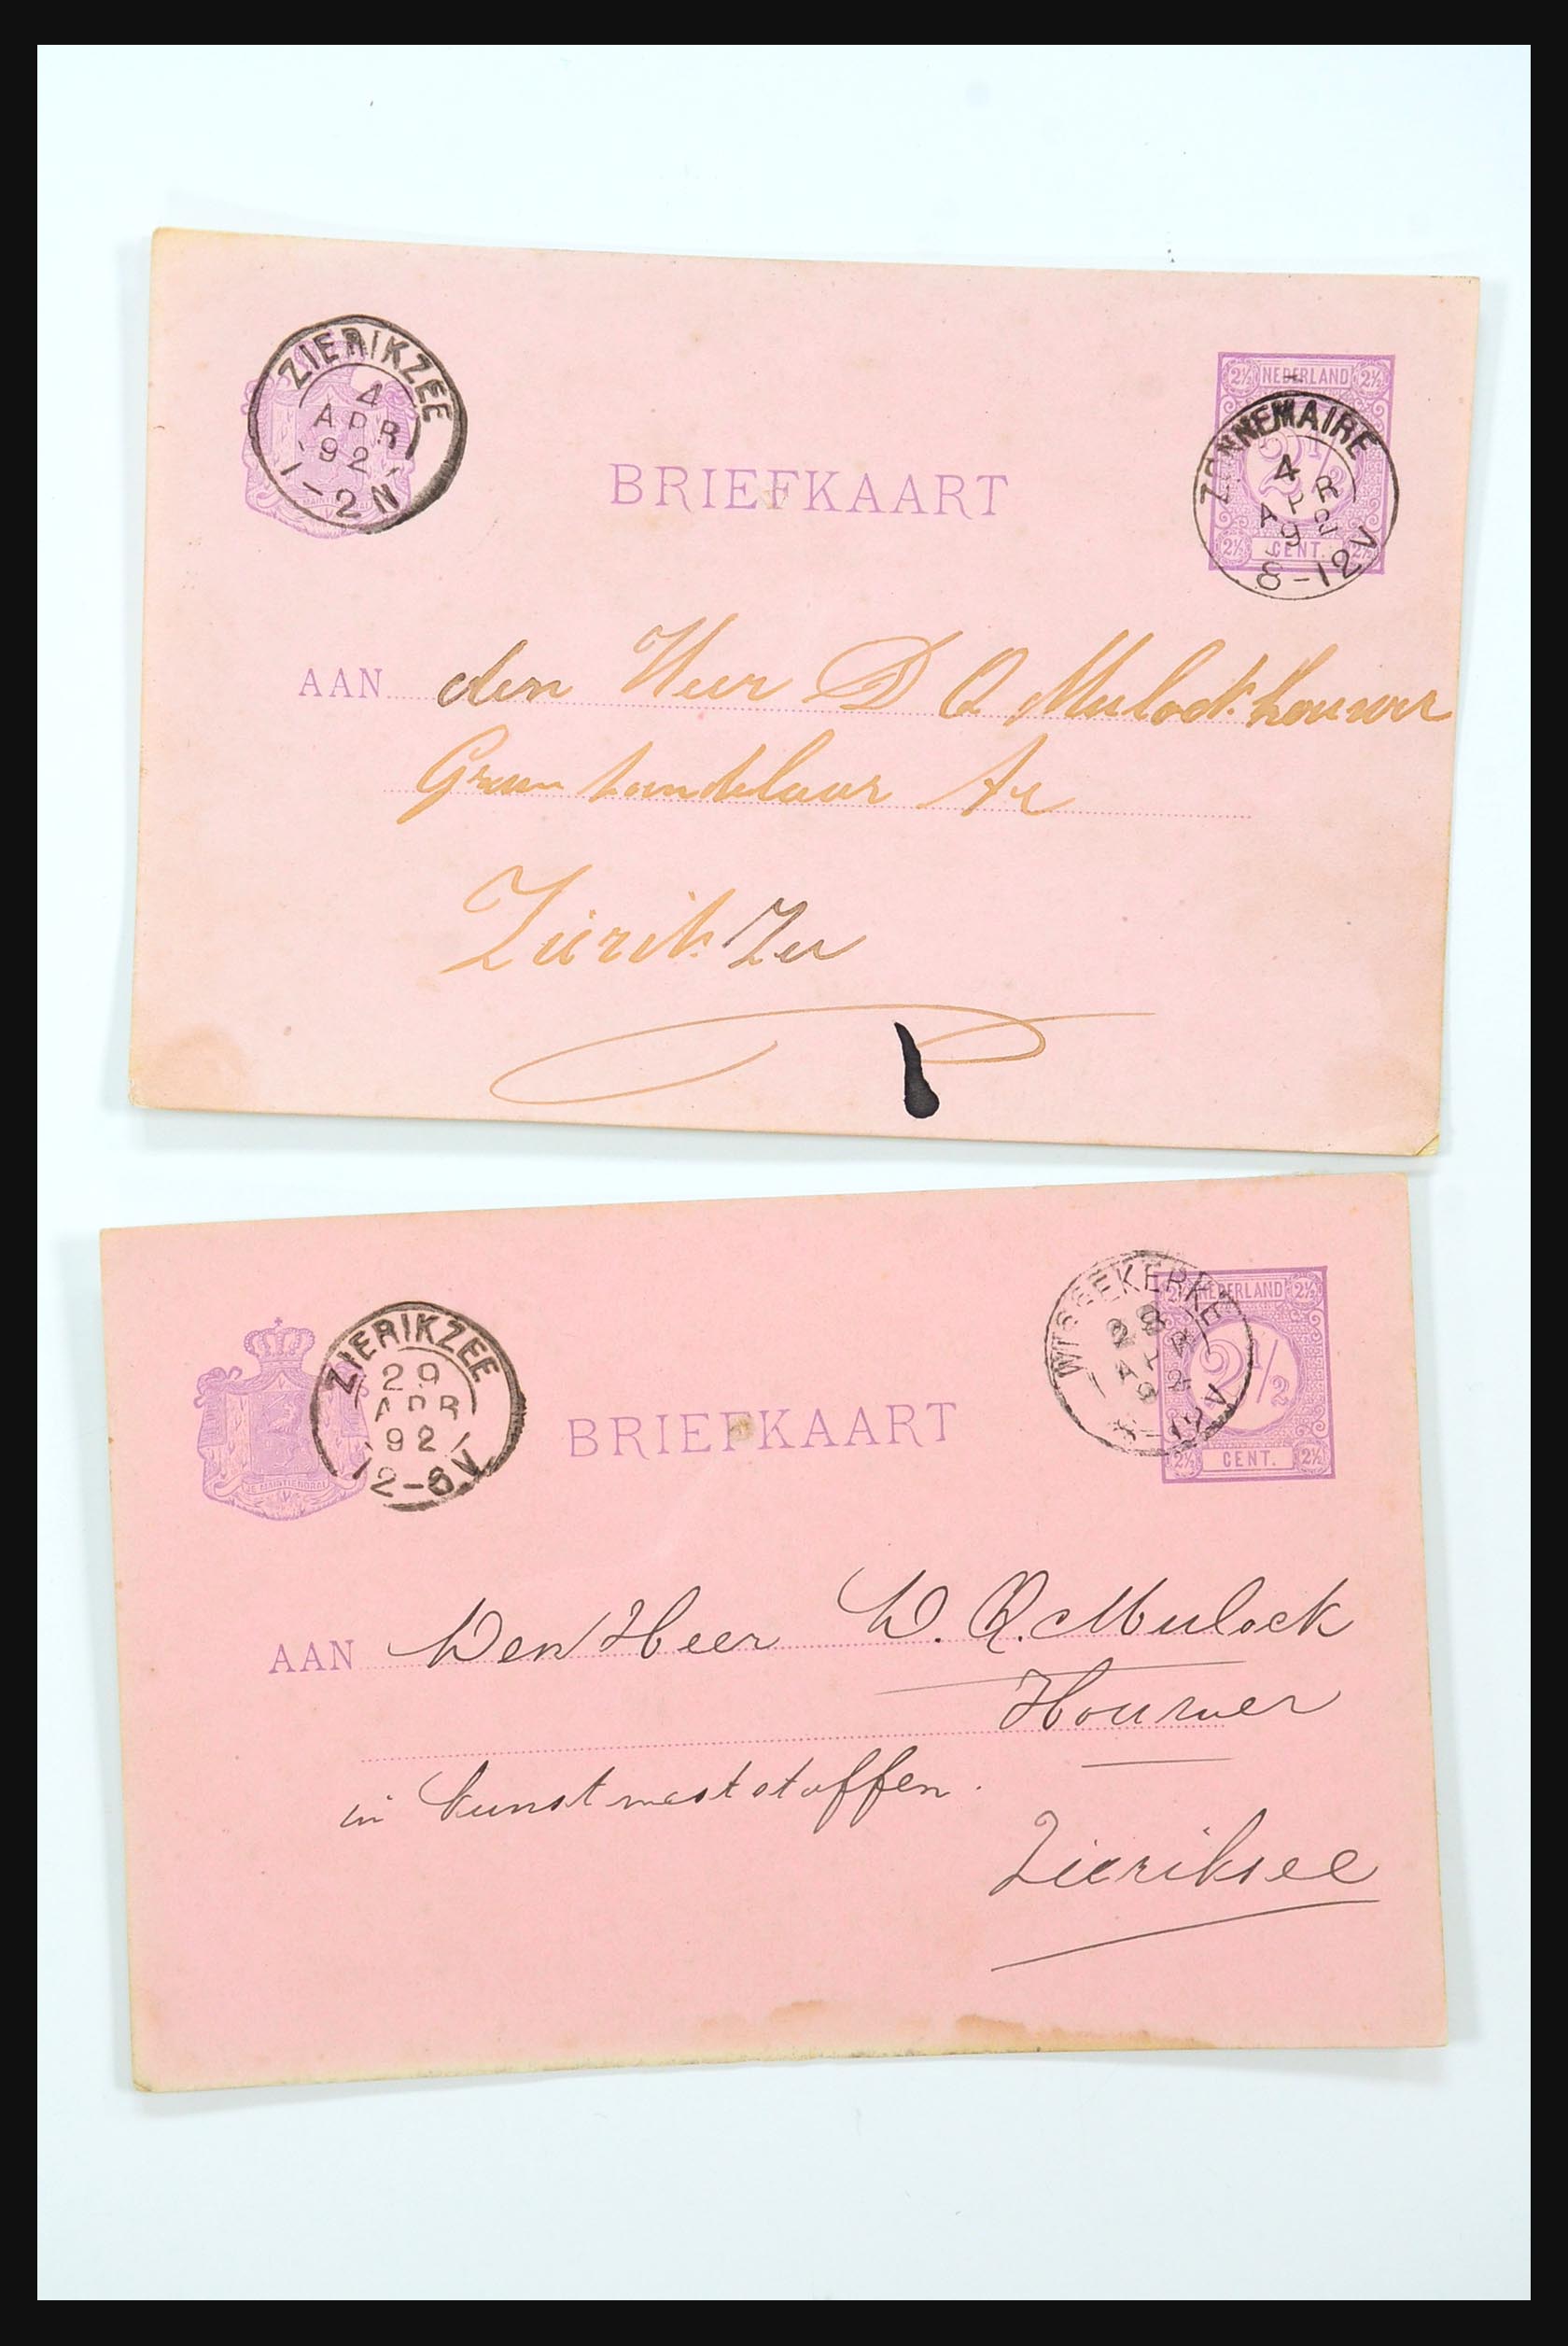 ZIERIKZEE
4
APR
92
1-2N
2½ NEDERLAND 2½
2½
2½ CENT. 2½
ZONNEMAIRE
4
APR
92
8-12V
BRIEFKAART
AAN den Heer D Q Mulock houwer
Graan handelaar te
ZierikZee
ZIERIKZEE
29
APR
92
12-6V
JE MAINTIENDRAI
BRIEFKAART
WISSEKERKE
28
APR
92
8-12V
2½ NEDERLAND 2½
2½
2½ CENT. 2½
AAN Den Heer D. Q. Mulock
Houwer
in kunstmeststoffen.
Zieriksee